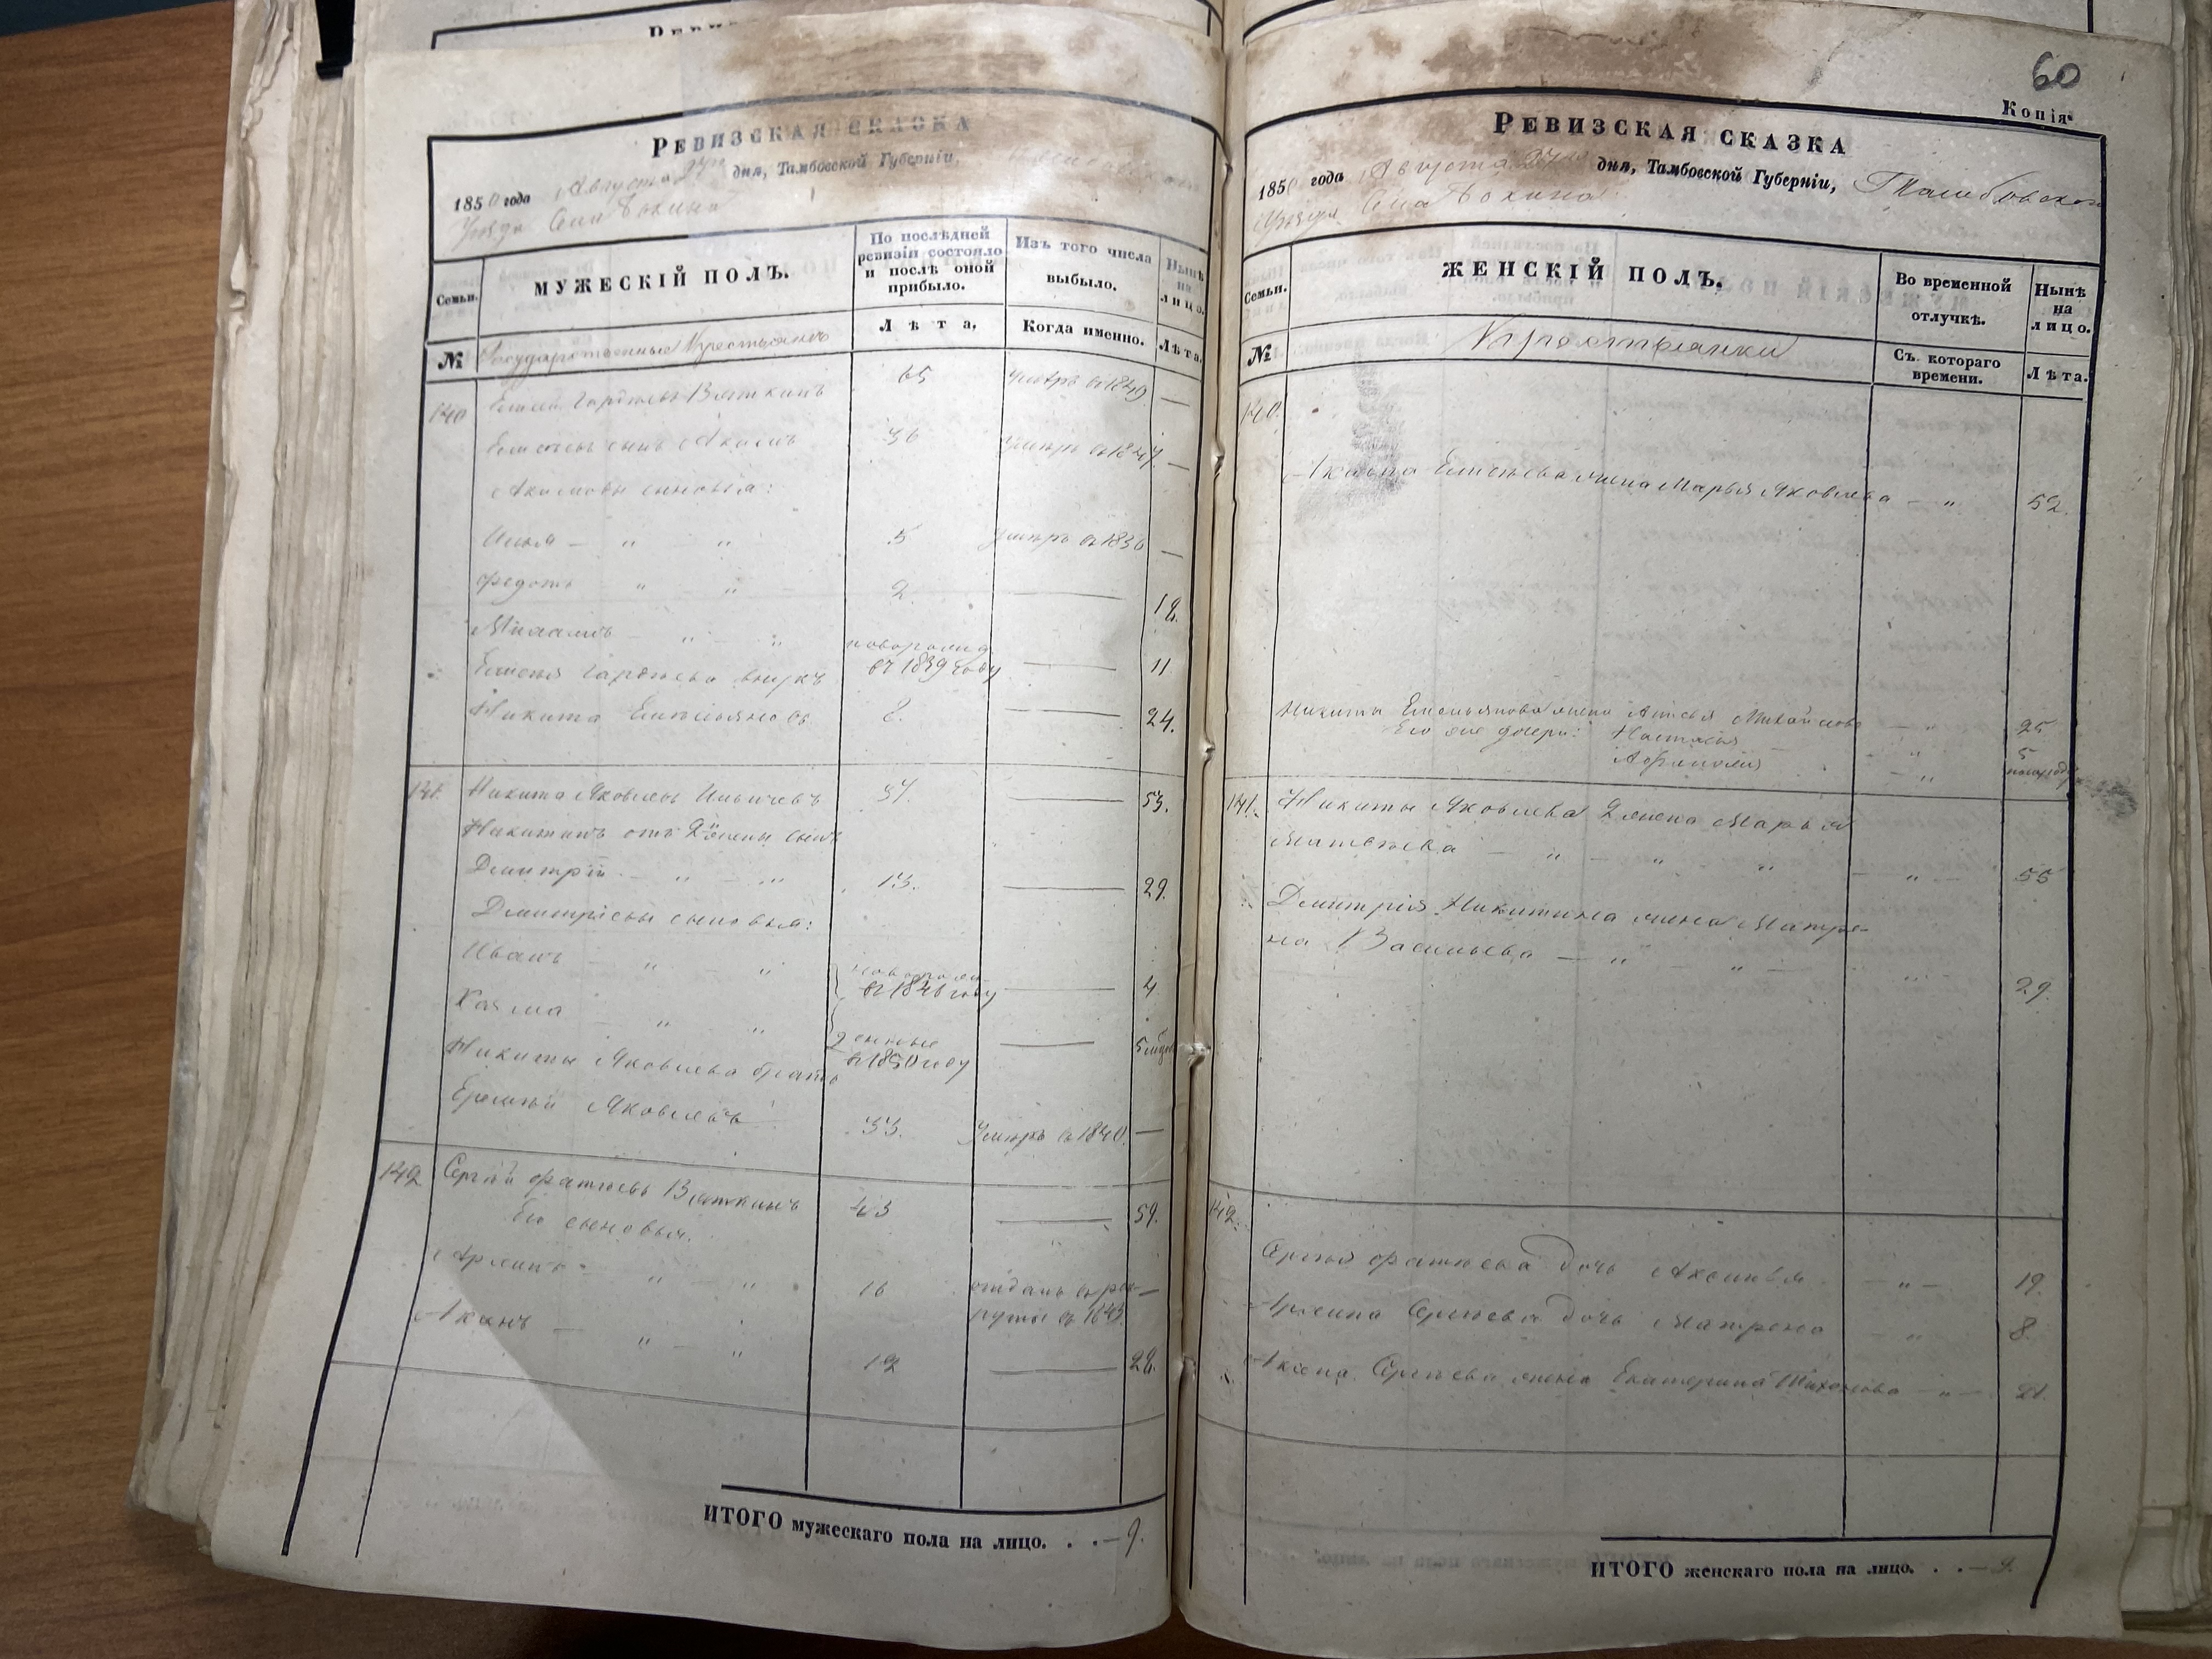 60
Копія
РЕВИЗСКАЯ СКАЗКА
1850 года Августа 27 дня, Тамбовской Губерніи,
Уѣзда Села
Семьи.
МУЖЕСКІЙ ПОЛЪ.
По послѣдней ревизіи состояло и послѣ оной прибыло.
Изъ того числа выбыло.
Нынѣ на лицо.
№
Государственные Крестьяне
Лѣта.
Когда именно.
Лѣта.
140 Вяткинъ 65 Умѣръ въ 1849. —
сынъ Акимъ 36 Умѣръ въ 1847. —
Акимовы сыновья:
Илья — " " 5 Умѣръ въ 1836 —
Федотъ " " 2. — 18.
Михаилъ — " — "
новорожд. въ 1839 году — 11
внукъ
Никита Емельяновъ 8. — 24.
141. Никита Яковлевъ 37. — 53.
Никитинъ отъ 2й жены сынъ
Дмитрій — " — " 13. — 29.
Дмитріевы сыновья:
Иванъ — " — "
новорож
въ 1846 году — 4
Козма — " "
денные
въ 1850 году —
Никиты Яковлева братъ
Еремѣй Яковлевъ 33. Умѣръ въ 1840. —
142 Сергѣй Фатѣевъ Вяткинъ 43 — 59.
Его сыновья.
Архипъ — " — " 16 отданъ въ рек-
руты въ 1843. —
" — " 12 — 28.
ИТОГО мужескаго пола на лицо. . . — 9.
РЕВИЗСКАЯ СКАЗКА
1850 года Августа 27 дня, Тамбовской Губерніи, Тамбовского
Уѣзда Села
Семьи.
ЖЕНСКІЙ ПОЛЪ.
Во временной отлучкѣ.
Нынѣ на лицо.
№
Крестьянки
Съ котораго времени.
Лѣта.
140.
жена Марья Яковлева — " 52.
Никиты Емельянова жена Михайлова — " 25
Его же дочери: Настасья " 5
— "
141. Никиты Яковлева 2 жена Марья
Матвѣева — " — " " — " — 55
Дмитрія Никитина жена Матре-
на Васильева — " — " — " 29.
142.
Сергѣя Фатѣева дочь Аксинья — " — 19.
Архипа Сергѣева дочь Матрена — " 8.
Сергѣева жена Екатерина Тихонова — " — 21.
ИТОГО женскаго пола на лицо. . . — 9.